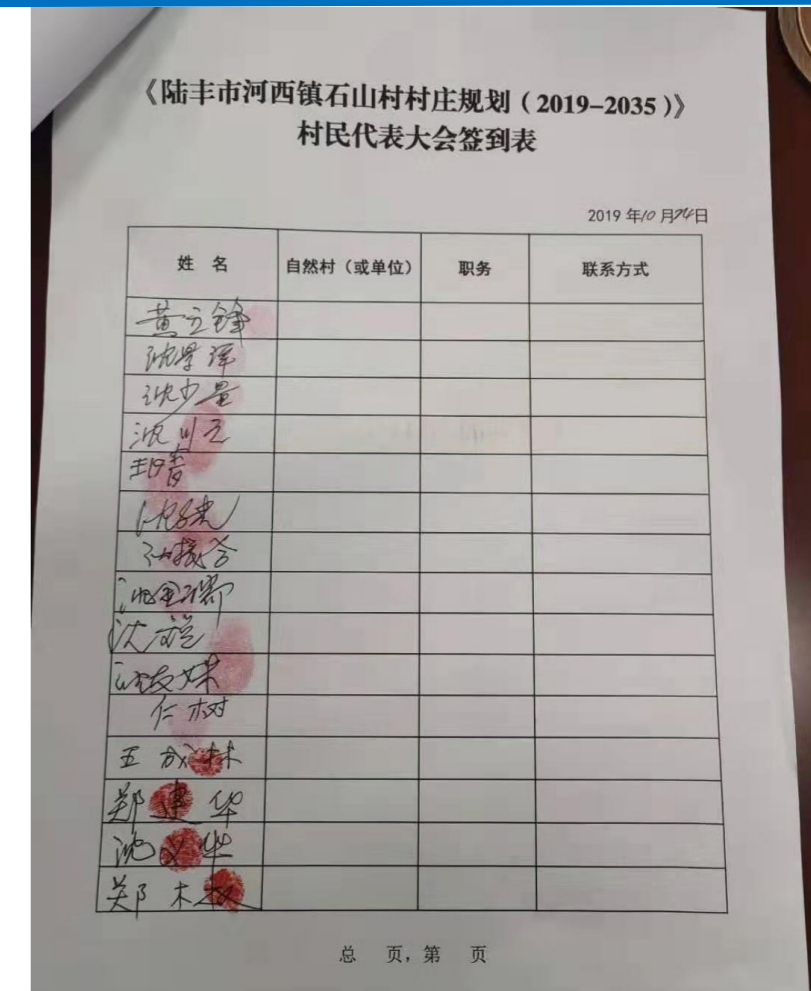 《陆丰市河西镇石山村村庄规划（2019-2035）》
村民代表大会签到表
2019 年10 月24日
姓 名 自然村（或单位） 职务 联系方式
黄立锋
沈少量
沈川元
沈国瑞
仁树
五成林
郑建华
沈义华
郑木权
总 页，第 页